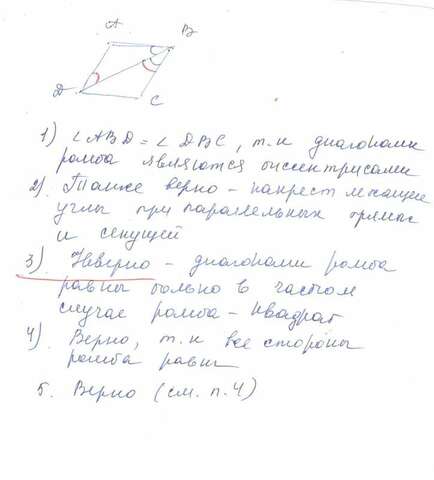 A B
D C
1) ∠ABD = ∠DBC, т.к диагонали
ромба являются биссектрисами
2) Также верно - накрест лежащие
углы при параллельных прямых
и секущей
3) Неверно - диагонали ромба
равны только в частном
случае ромба - квадрат
4) Верно, т.к все стороны
ромба равны
5. Верно (см. п. 4)